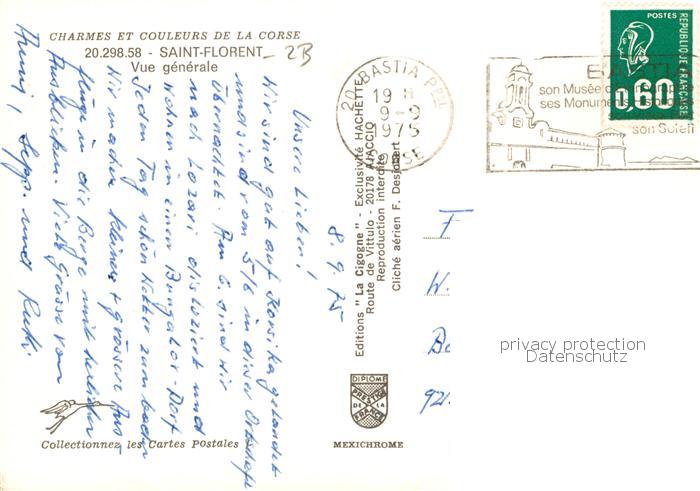 CHARMES ET COULEURS DE LA CORSE
20.298.58 - SAINT-FLORENT - 2B
Vue générale
8.9.75
Unsere Lieben!
Wir sind gut auf Korsika gelandet
und sind vom 5/6 in dieser Ortschaft
übernachtet. Am 6. sind wir
nach Lozari disloziert und
wohnen in einem Bungalov-Dorf
Jeden Tag schön Wetter zum baden
Wir machen kleinere + grössere Aus
flüge in die Berge mit herrlichen
Ausblicken. Viele Grüsse von
Hunni, Sepp. und Ruthi.
Collectionnez les Cartes Postales
Editions "La Cigogne" - Exclusivité HACHETTE
Route de Vittulo - 20178 AJACCIO
Reproduction interdite
Cliché aérien F. Desjobert
DIPLOME
PRESTIGE
DE LA
FRANCE
MEXICHROME
20 BASTIA PPAL
19 H
9-9
1975
CORSE
BASTIA
son Musée
ses Monuments
son Soleil
POSTES
REPUBLIQUE FRANÇAISE
0,60
F
W.
Be
921.
privacy protection
Datenschutz